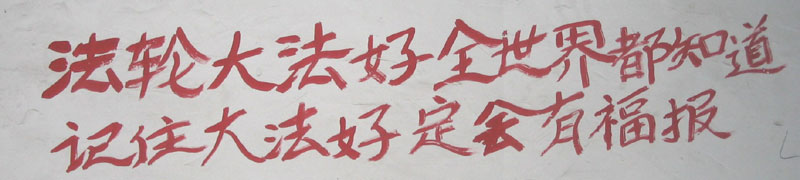 法轮大法好全世界都知道
记住大法好定会有福报